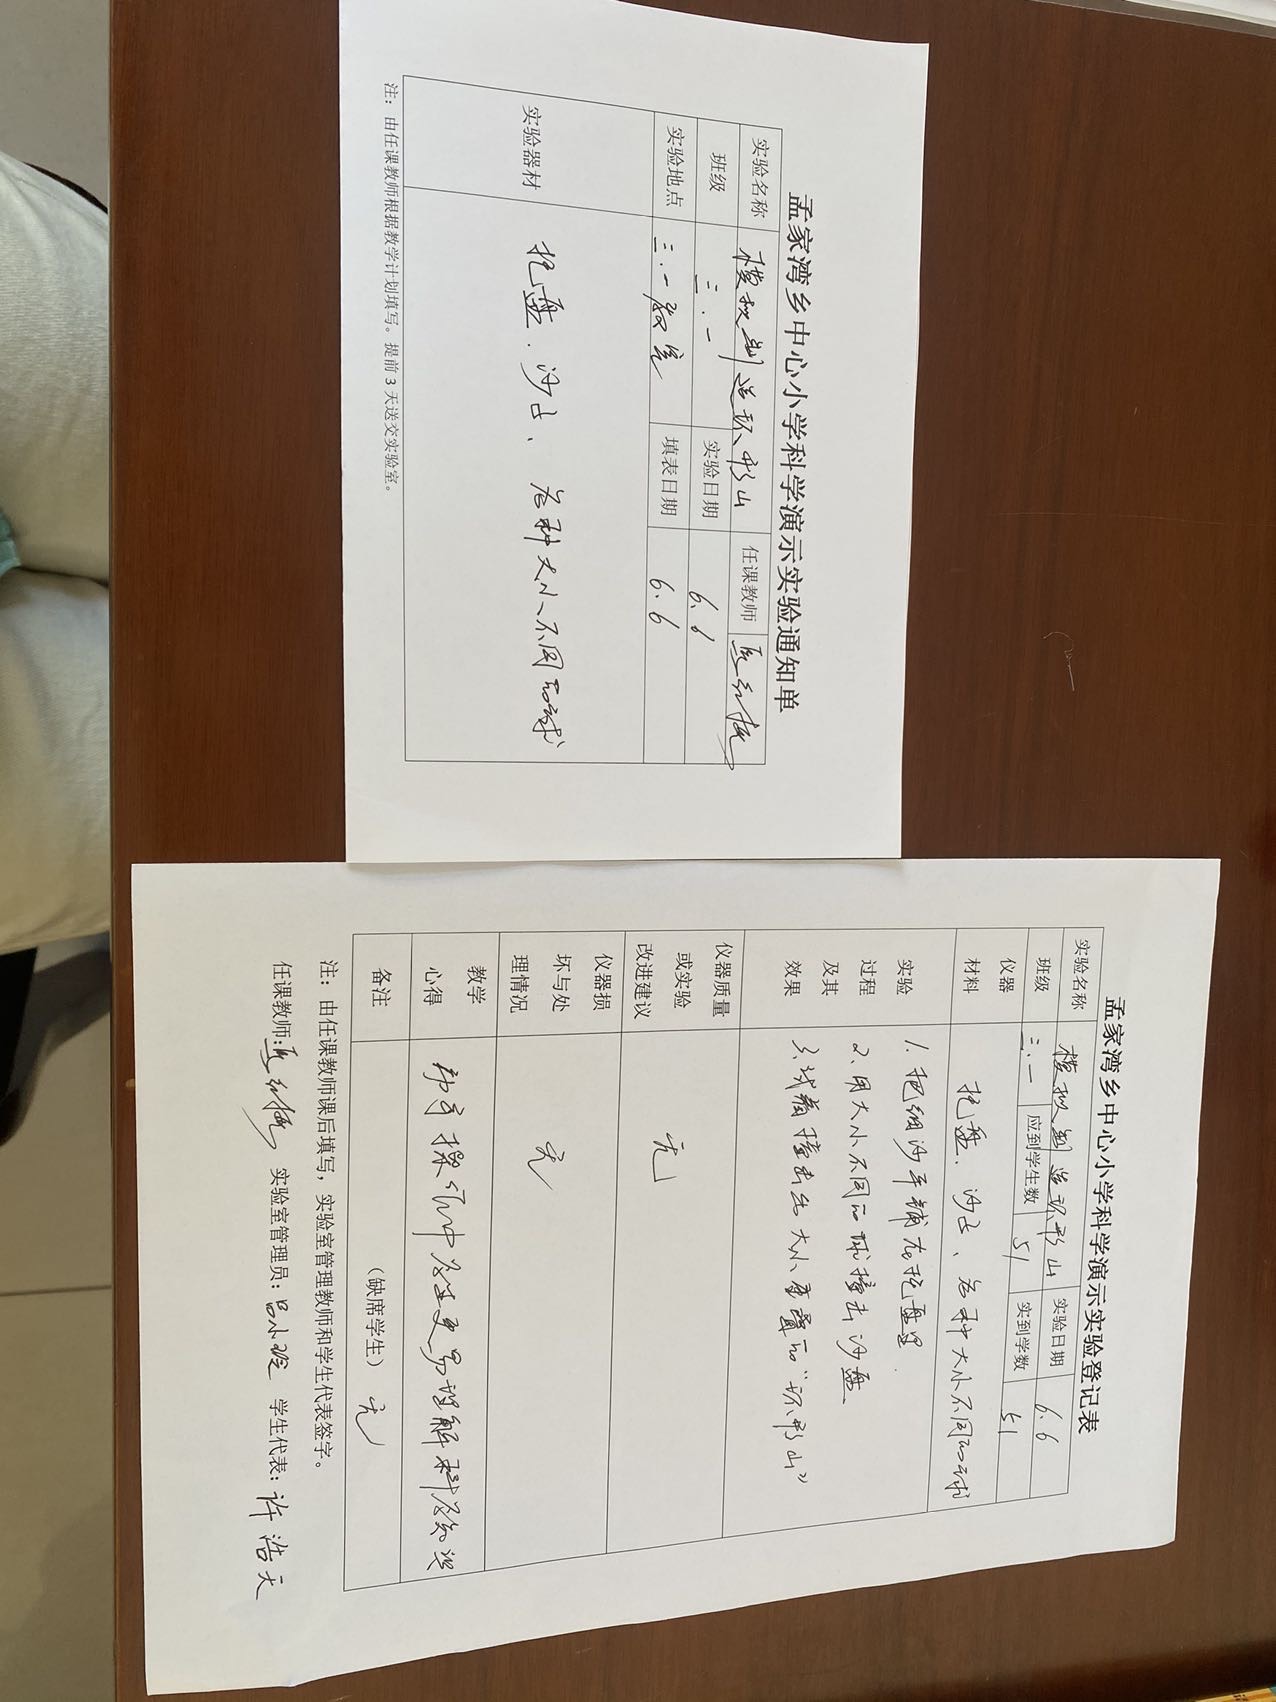 孟家湾乡中心小学科学演示实验通知单
实验名称 模拟制造环形山 任课教师
班级 三.一 实验日期 6.6
实验地点 三.一教室 填表日期 6.6
实验器材 托盘、沙子、各种大小不同的球
注：由任课教师根据教学计划填写。提前3天送交实验室。
孟家湾乡中心小学科学演示实验登记表
实验名称 模拟制造环形山 实验日期 6.6
班级 三.一 应到学生数 51 实到学数 51
仪器
材料
托盘、沙子、各种大小不同的球
实验
过程
及其
效果
1.把细沙平铺在托盘里.
2.用大小不同的球撞击沙盘
3.试着撞击出大小重叠的“环形山”
仪器质量
或实验
改进建议
无
仪器损
坏与处
理情况
无
教学
心得
动手操作中学生更易理解科学知识
备注 （缺席学生） 无
注：由任课教师课后填写，实验室管理教师和学生代表签字。
任课教师: 实验室管理员: 吕小 学生代表: 许浩天